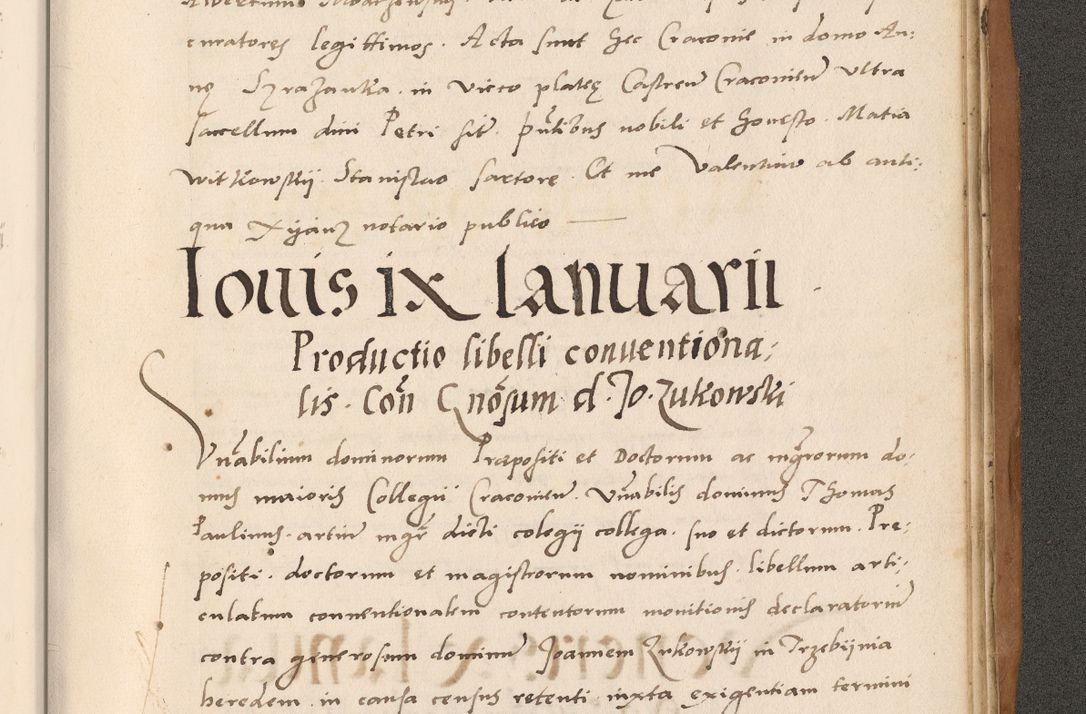 curatores legittimos. Acta sunt hec Craconie in domo An:
nę in vico plateę Castren Craconien ultra
saccellum divi Petri sit. pntibus nobili et honesto. Matia
Witkowskij. Stanislao sartore. Et me Valentino ab anti:
qua notario publico
Iouis ix Ianuarii
Productio libelli conuentiona:
lis. Con Gnosum d. Jo. Zukowski
Vnabilium dominorum Præpositi et Doctorum ac mgrorum do:
mus maioris Collegii Craconien. Vnabilis dominus Thomas
Paulinus. artium mgr dicti colegij collega. suo et dictorum. Pre:
positi. doctorum et magistrorum nominibus. libellum arti:
culatum conuentionalem contentorum monitionis declaratorium
contra generosum dominum Joannem Zukowskij in Trzebijnia
heredem. in causa census retenti. iuxta exigentiam termini